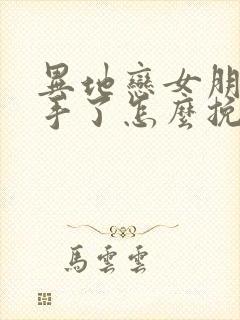 異地戀女朋
手了怎麼挽
馬雲雲